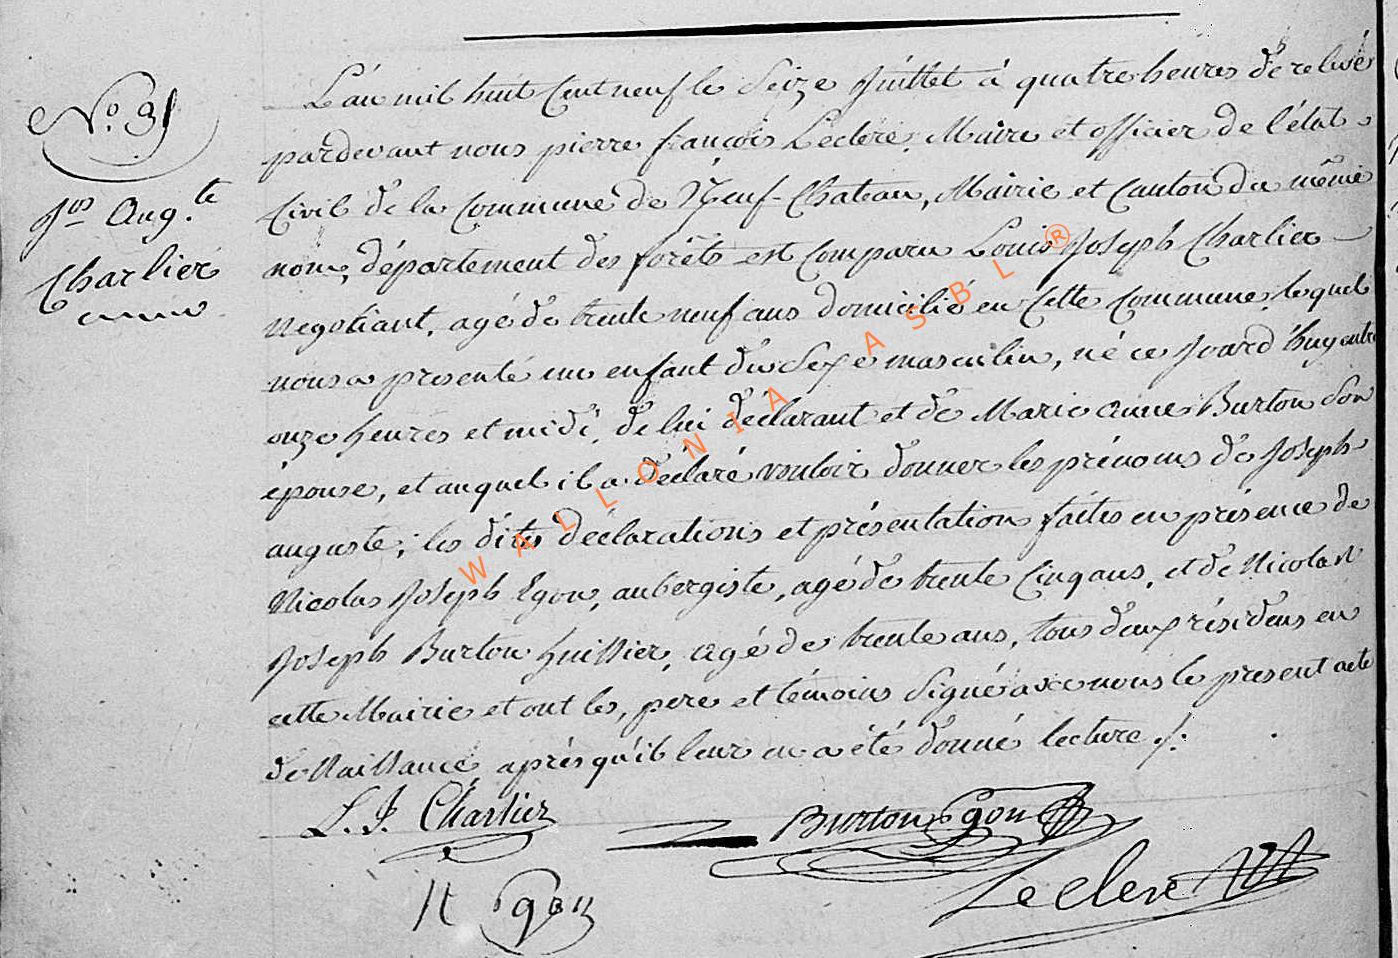 No. 31
Jos Aug.te
Charlier
L'an mil huit Cent neuf le Seize Juillet à quatre heures de relevée
pardevant nous pierre françois Leclerc, Maire et officier de l'état
Civil de la Commune de Neuf-Chateau, Mairie et Canton du même
nom, département des forêts est Comparu Louis Joseph Charlier
Negotiant, agé de trente neuf ans domicilié en Cette Commune, lequel
nous a presenté un enfant du Sexe masculin, né ce Jourd'huy entre
onze heures et midi, de lui déclarant et de Marie anne Burton Son
épouse, et auquel il a déclaré vouloir donner les prénoms de Joseph
auguste; les dites déclarations et présentation faites en présence de
Nicolas Joseph Egon, aubergiste, agé de trente Cinq ans, et de Nicolas
Joseph Burton huissier, agé de trente ans, tous deux résidens en
cette Mairie et ont les, pere et témoins Signé avec nous le present acte
de Naissance, après qu'il leur en a été donné lecture ./.
L. J. Charlier
Burton Egon
N Egon
Leclerc
WALLONIA ASBL ®